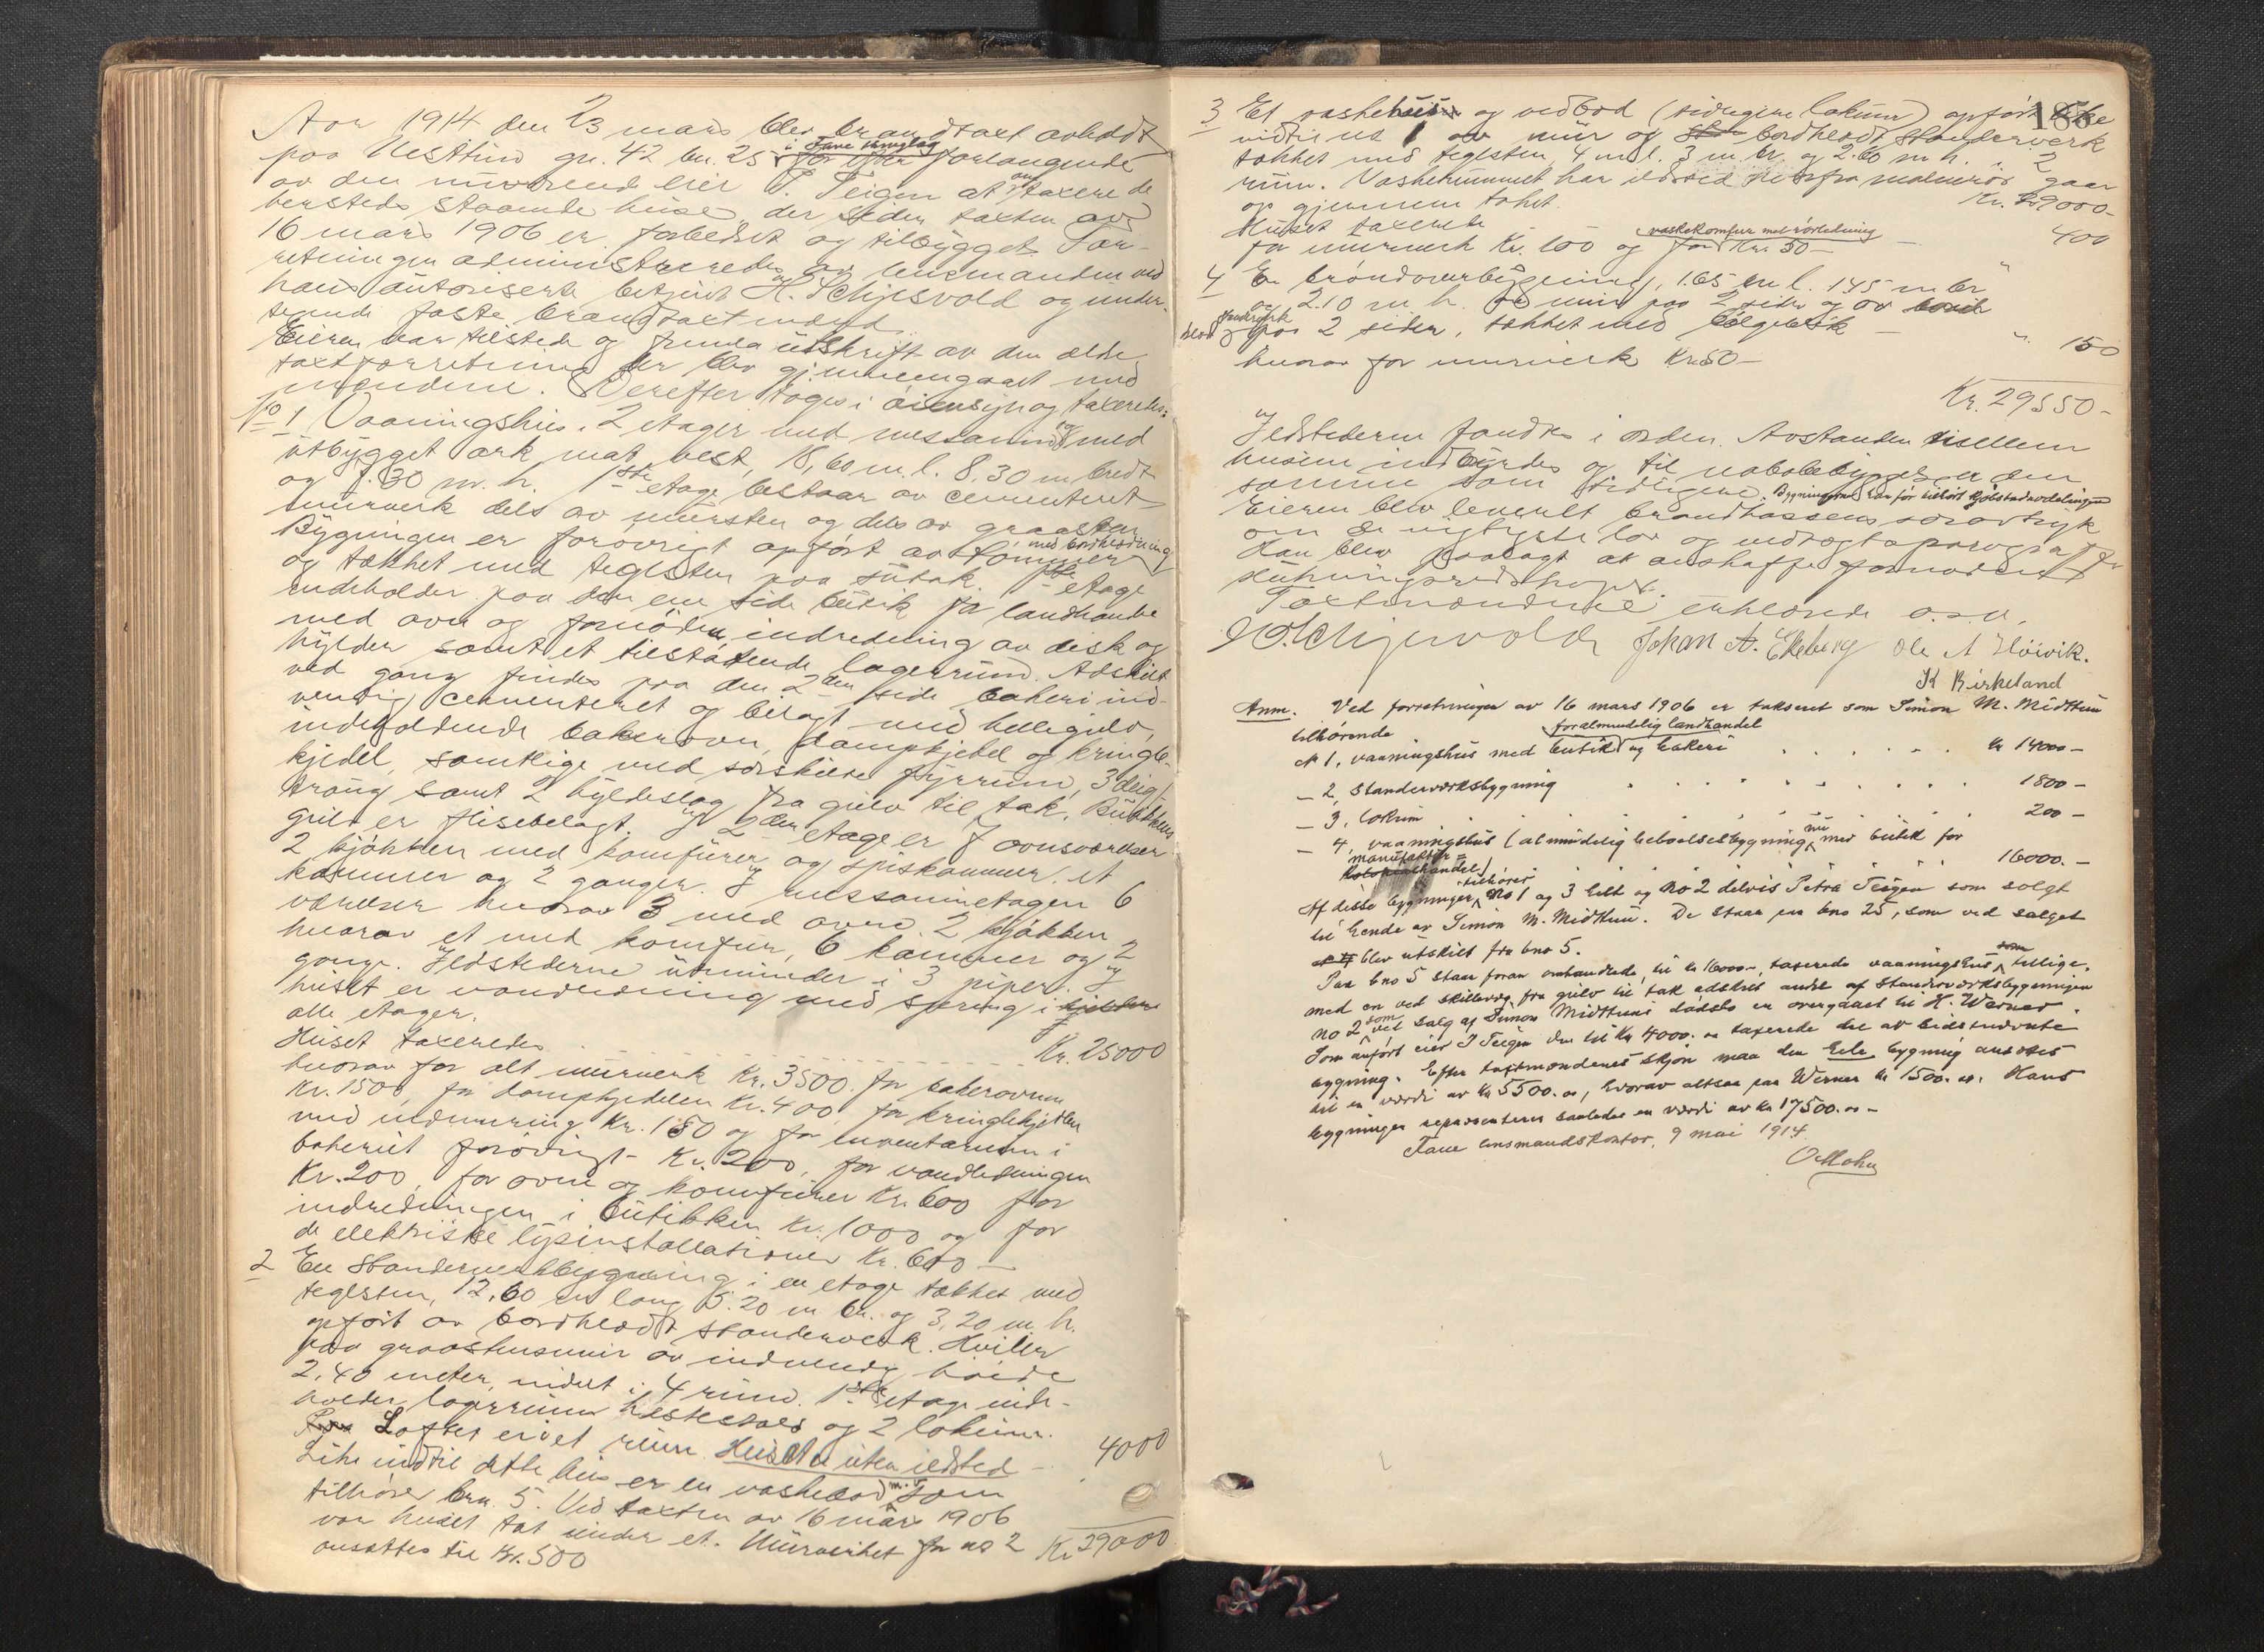 Aar 1914 den 23 mars blev brandtaxt avholdt
paa Nesttun gn. 42 bn. 25 i Fane skugelag forlangende
av den nuværende eier P. Teigen at omtaxere de
bersteds staaende huse, der siden taxten av
16 mars 1906 er forbedret og tilbygget. For-
retningen administreredes av lensmanden ved
hans autoriserte betjent H. Schjesvold og under-
tegnede faste brandtaxtmænd.
Eieren var tilstede og fremla utskrift av den ældre
taxtforretning der blev gjennemgaaet med
mændene. Derefter toges i øiensyn og taxeredes:
No 1 Vaaningshus, 2 etager med messanin og med
utbygget ark mot vest, 18,60 m. l. 8.30 m. bredt
og 7.30 m. h. 1ste etage bestaar av cementeret
murverk dels av mursten og dels av graasten
Bygningen er forøvrigt opført av tømmer med bordklædning
og tækket med teglsten paa sutak. 1ste etage
indeholder paa den ene side butik for landhandel
med ovn og fornøden indredning av disk og
hylder samt et tilstøtende lagerrum. Adskilt
ved gang findes paa den 2den side bakeri ind-
vendig cementeret og belagt med hellegulv,
indeholdende bakerovn, dampkjedel og kringle-
kjedel, samtlige med særskilte fyrrum, 3 deig-
traug samt 2 hyldeslag fra gulv til tak. Butikkens
gulv er flisebelagt. I 2den etage er 7 ovnsværelser
2 kjøkken med komfurer og spiskammer, et
kammer og 2 ganger. I messaninetagen 6
værelser hvorav 3 med ovn. 2 kjøkken
hvorav et med komfur, 6 kammer og 2
gange. Ildstederne utmunder i 3 piper. I
huset er vandledning med spring i
alle etager.
Huset taxeredes Kr. 25000
hvorav for alt murverk Kr. 3500. for bakerovnen
Kr. 1500, for dampkjedelen Kr. 400, for kringlekjedlen
med indmuring Kr. 150 og for inventarium i
bakeriet forøvrigt Kr. 200, for vandledningen
Kr. 200, for ovne og komfurer Kr. 600 for
indredningen i butikken Kr. 1000 og for
de elektriske lysinstallationer Kr. 600 —
2 En standerverkbygning i en etage tækket med
teglsten, 12.60 m lang 5.20 m br. og 3.20 m h.
opført av bordklædt standerverk. Hviler
paa graastensmur av indvendig høide
2.40 meter, indret i 4 rum. 1ste etage inde-
holder lagerrum hestestald og 2 lokum.
Loftet er i et rum. Huset er uten ildsted — 4000
Like indtil dette hus er en vaskebod m.v. som
tilhører brn. 5. Ved taxten av 16 mars 1906
var huset tat under et. Murverket for no 2 Kr. 29000
ansættes til Kr. 500
185
3 Et vaskehus og vedbod (tidligere lokum) opført like
indtil no 1 av mur og bordklædt standerverk
tækket med teglsten, 4 m. l. 3 m. br. og 2.60 m h. i 2
rum. Vaskerummet har ildsted hvorfra malmrør gaar
op gjennem taket. Kr. 29000-
Huset taxerede
for murverk Kr. 100 og for vaskekomfur med rørledning Kr. 50 — 400
4 En brøndoverbygning, 1.65 m l. 145 m br
og 2.10 m h. av mur paa 2 sider og av
standerverk paa 2 sider, tækket med bølgeblik — " 150
hvorav for murverk Kr. 50 —
Kr. 29550-
Ildstederne fandtes i orden. Avstanden mellem
husene indbyrdes og til nabobebyggelsen er den
samme som tidligere. Bygningerne har før tilhørt Kjøbstadavdelingen
Eieren blev leveret brandkassens særavtryk
om de vigtigste lov og vedtægtsparagrafer
Han blev paalagt at anskaffe fornødent
slukningsredskaper.
Taxtmændene erklærede o.s.v.
H. Schjesvold Johan A. Ekeberg Ole A Høivik.
K Birkeland
Anm. Ved forretningen av 16 mars 1906 er takseret som Simon M. Midttun
tilhørende
No 1, vaaningshus med butik for almindelig landhandel og bakeri Kr 14000 —
— 2, Standerværksbygning 1800 —
— 3, lokum 200 —
— 4, vaaningshus (almindelig beboelsesbygning nu med butik for
manufaktur-
kolonialhandel) 16000. —
Af disse bygninger tilhører No 1 og 3 helt og No 2 delvis Petra Teigen som solgt
til hende av Simon M. Midttun. De staar paa bno 25, som ved salget
blev utskilt fra bno 5.
Paa bno 5 staar foran omhandlede, til kr 16000-, taxerede vaaningshus som tillige-
med en ved skillevæg fra gulv til tak adskilt andel af standerværksbygningen
no 2 som ved salg af Simon Midttuns dødsbo er overgaaet til H. Werner.
Som anført eier P Teigen den til Kr 4000. — taxerede del av sidstnævnte
bygning. Efter taxtmændenes skjøn maa den hele bygning ansættes
til en værdi av Kr 5500. oo, hvorav altsaa paa Werner Kr 1500. oo. Hans
bygninger repræsenterer saaledes en værdi av Kr 17500. oo —
Fane lensmandskontor, 9 mai 1914.
O. Mohn